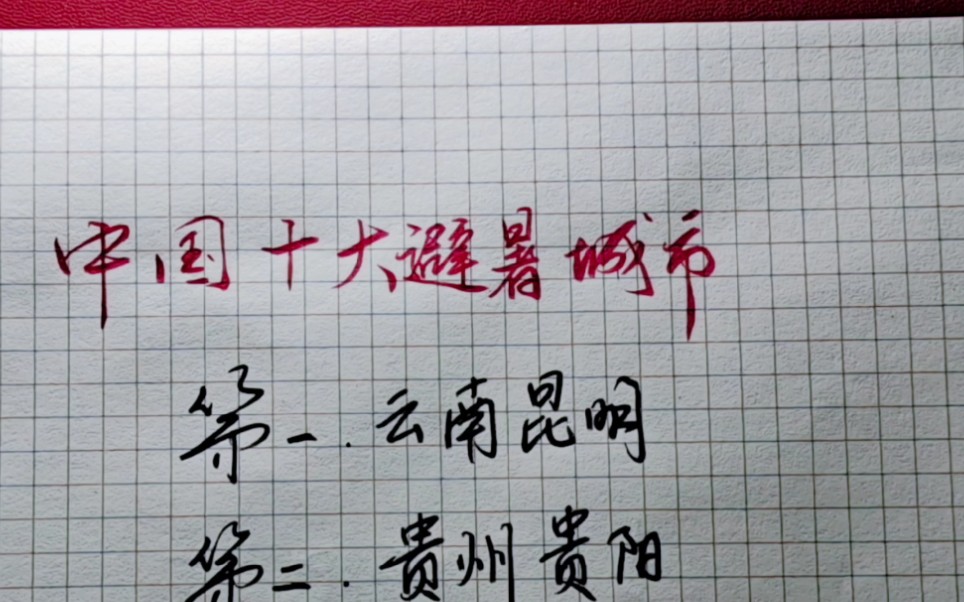 中国十大避暑城市
第一.云南昆明
第二.贵州贵阳